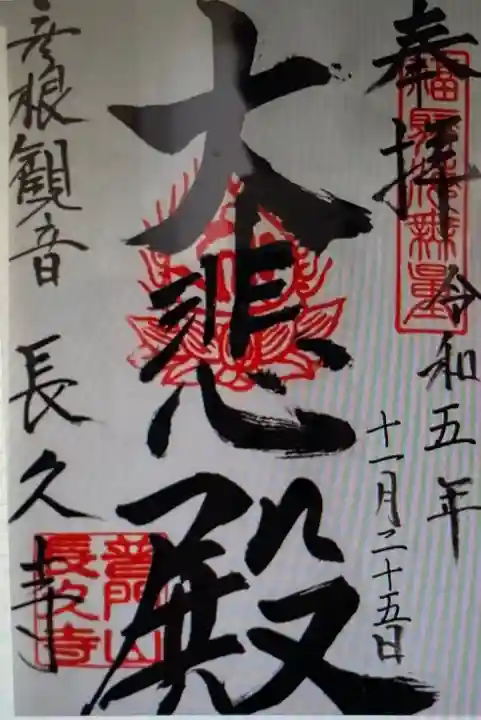 奉拝
福聚海無量
令和五年
十一月二十五日
大悲殿
彦根観音 長久寺
普門山
長久寺